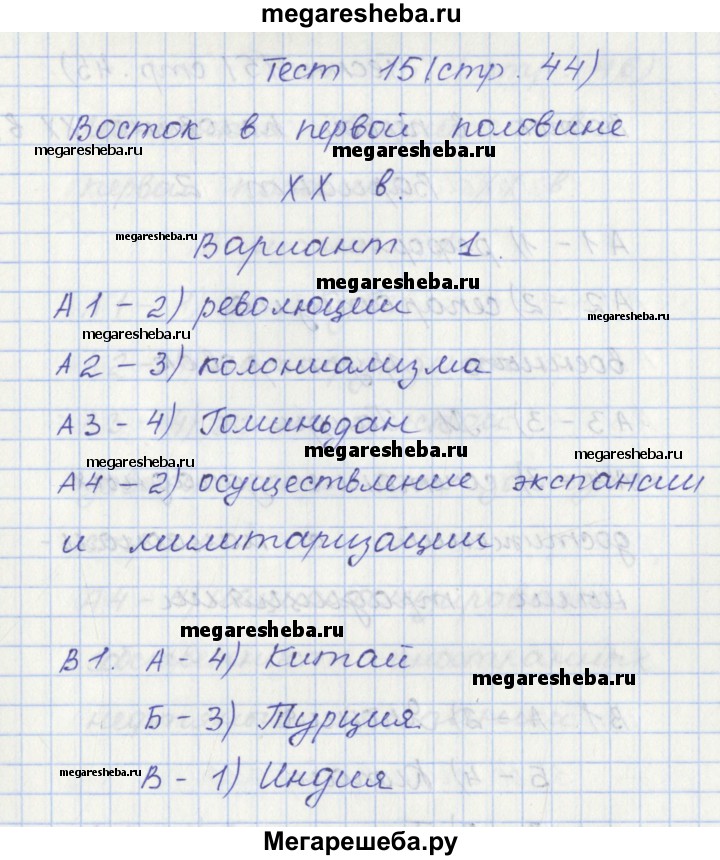 megaresheba.ru
Тест 15 (стр. 44)
Восток в первой половине
megaresheba.ru megaresheba.ru
XX в.
megaresheba.ru
Вариант 1.
megaresheba.ru
А1 - 2) революции
megaresheba.ru
megaresheba.ru
А2 - 3) колониализма
А3 - 4) Гоминьдан
megaresheba.ru megaresheba.ru megaresheba.ru
А4 - 2) осуществление экспансии
и милитаризации
megaresheba.ru
В1. А - 4) Китай
megaresheba.ru
Б - 3) Турция.
megaresheba.ru
В - 1) Индия
Мегарешеба.ру